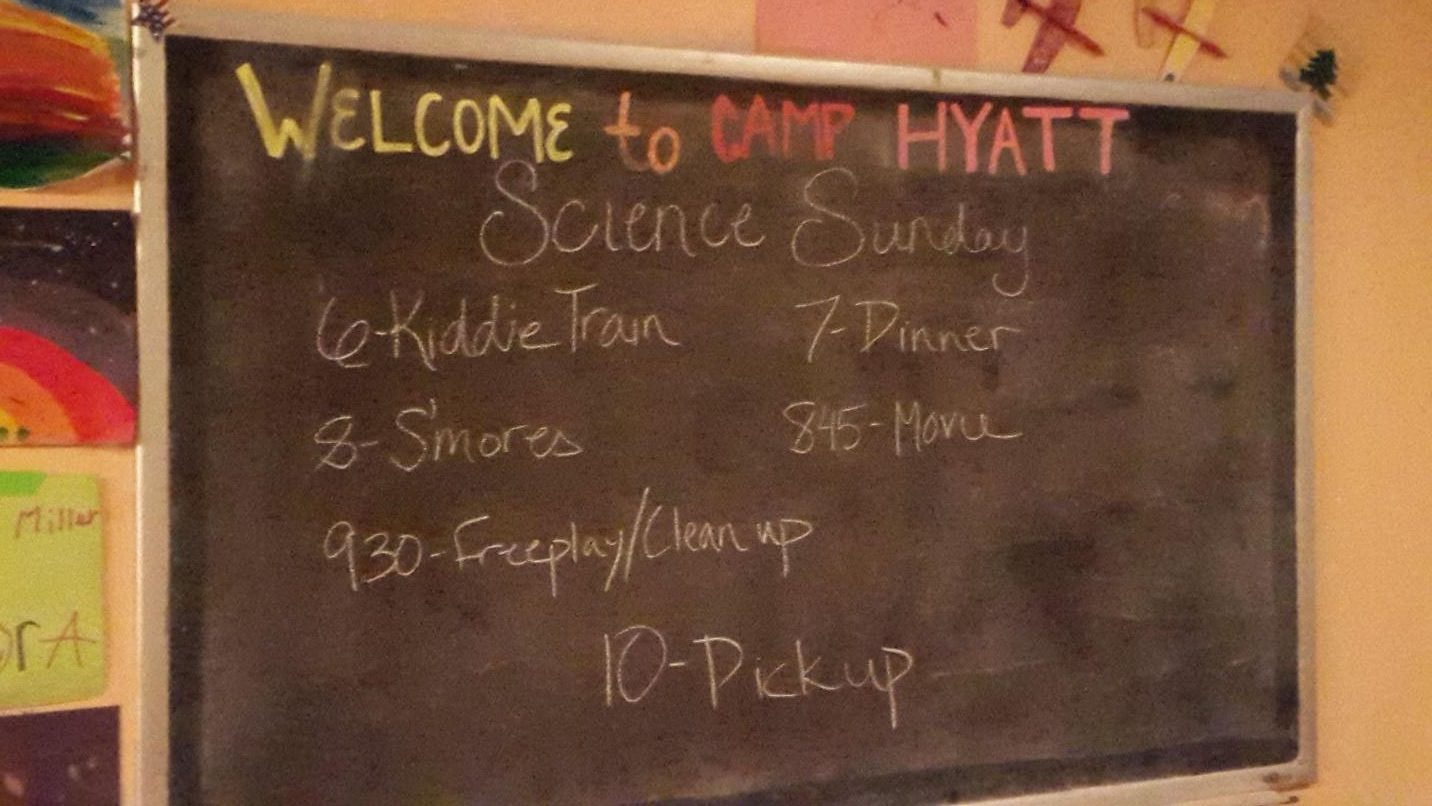 WELCOME to CAMP HYATT
Science Sunday
6-Kiddie Train
7-Dinner
8-S'mores
845-Movie
930-Freeplay/Clean up
10-Pickup
Miller